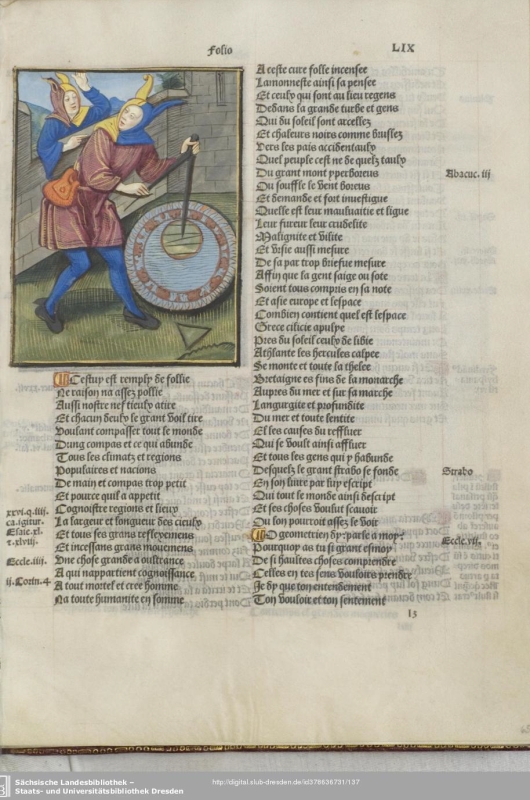 folio
LIX
Cestuy est remply de follie
Ne raison na assez pollie
Aussi nostre nef tieulx atire
Et chacun deulx le grant voil tire
Voulant compasser tout le monde
Dung compas et ce qui abunde
Tous les climatz et regions
Populaires et nacions
De main et compas trop petit
Et pource quil a appetit
Cognoistre regions et lieux
La largeur et longueur des cieulx
Et tous ses grans reflexemens
Et incessans grans mouemens
Une chose grande a oultrance
A qui nappartient cognoissance
A tout mortel et cree homme
Na toute humanite en somme
xxvi.q.iiii.
ca.igitur.
Esaie.xl.
z.xlvii.
Eccle.iiii.
ii.Corin.4
A ceste cure folle incensee
Lamonneste ainsi sa pensee
Et ceulx qui sont au lieu regens
Dedans la grande turbe et gens
Qui du soleil sont arcellez
Et chaleurs noirs comme bruslez
Vers les pais accidentaulx
Quel peuple cest ne de quelz taulx
Du grant mont yperboreus
Ou souffle le vent boreus
Et demande et fort investigue
Quelle est leur mauluaitie et ligue
Leur fureur leur crudelite
Malignite et vilite
Et visie aussi mesure
De sa par trop briefue mesure
Affin que la gent saige ou sote
Soient tous compris en sa note
Et asie europe et lespace
Combien contient quel est lespace
Grece cilicie apulye
Pres du soleil ceulx de libie
Athlante les hercules calpee
Se monte et toute la thelee
Bretaigne es fins de sa monarche
Aupres du mer et sur sa marche
Langurgite et profundite
Du mer et toute sentite
Et les causes du reffluer
Qui se voult ainsi affluer
Et tous les gens qui y habunde
Desquelz le grant strabo se fonde
En son livre par luy escript
Qui tout le monde ainsi descript
Et les choses voulut scavoir
Ou lon pourroit assez le voir
O geometrien dy: parle a moy:
Pourquoy as tu si grant esmoy
De si haultes choses comprendre
Celles en tes sens vouloirs prendre
Je dy que ton entendement
Ton vouloir et ton sentement
Abacuc. iij
Strabo
Eccle.vii.
l3
Sächsische Landesbibliothek –
Staats- und Universitätsbibliothek Dresden
http://digital.slub-dresden.de/id378638731/137